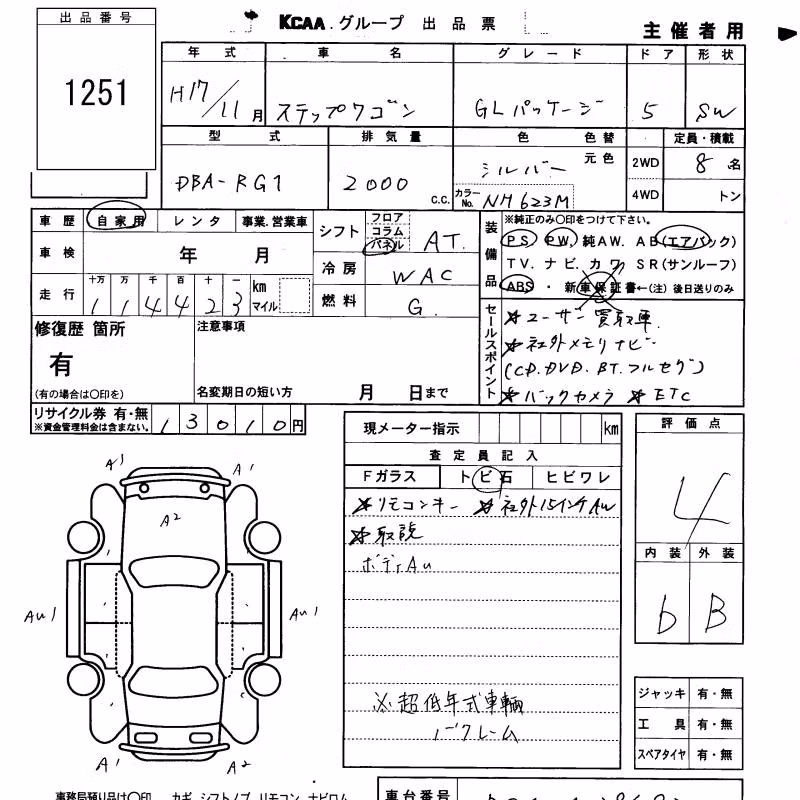 出品番号
1251
KCAA.グループ 出品票
主催者用
年式 車名 グレード ドア 形状
H17/11月 ステップワゴン GLパッケージ 5 SW
型式 排気量 色 色替 元色 2WD 4WD 定員・積載
DBA-RG1 2000 C.C. シルバー カラーNo. NH623M 8名 トン
車歴 自家用 レンタ 事業.営業車
車検 年 月
走行 十万 万 千 百 十 一 km マイル
1 1 4 4 2 3
シフト フロア コラム パネル AT.
冷房 WAC
燃料 G.
装備品 ※純正のみ〇印をつけて下さい。
PS PW. 純AW. AB(エアバック)
TV. ナビ. カワ. SR(サンルーフ)
ABS ・ 新車保証書←(注)後日送りのみ
修復歴 箇所
有
(有の場合は〇印を)
注意事項
名変期日の短い方 月 日まで
セールスポイント
★ユーザー買取車
★社外メモリナビ
(CD.DVD.BT.フルセグ)
★バックカメラ ★ETC
リサイクル券 有・無
※資金管理料金は含まない。
13010円
現メーター指示 km
査定員記入
Fガラス トビ石 ヒビワレ
★リモコンキー ★社外15インチAW
★取説
ボディAu
※超低年式車輌
ノークレーム
評価点
4
内装 外装
b B
ジャッキ 有・無
工具 有・無
スペアタイヤ 有・無
A1 A1
A2
Au1 Au1
A1 A2
事務局預り品は〇印 カギ シフトノブ リモコン ナビロム
車台番号